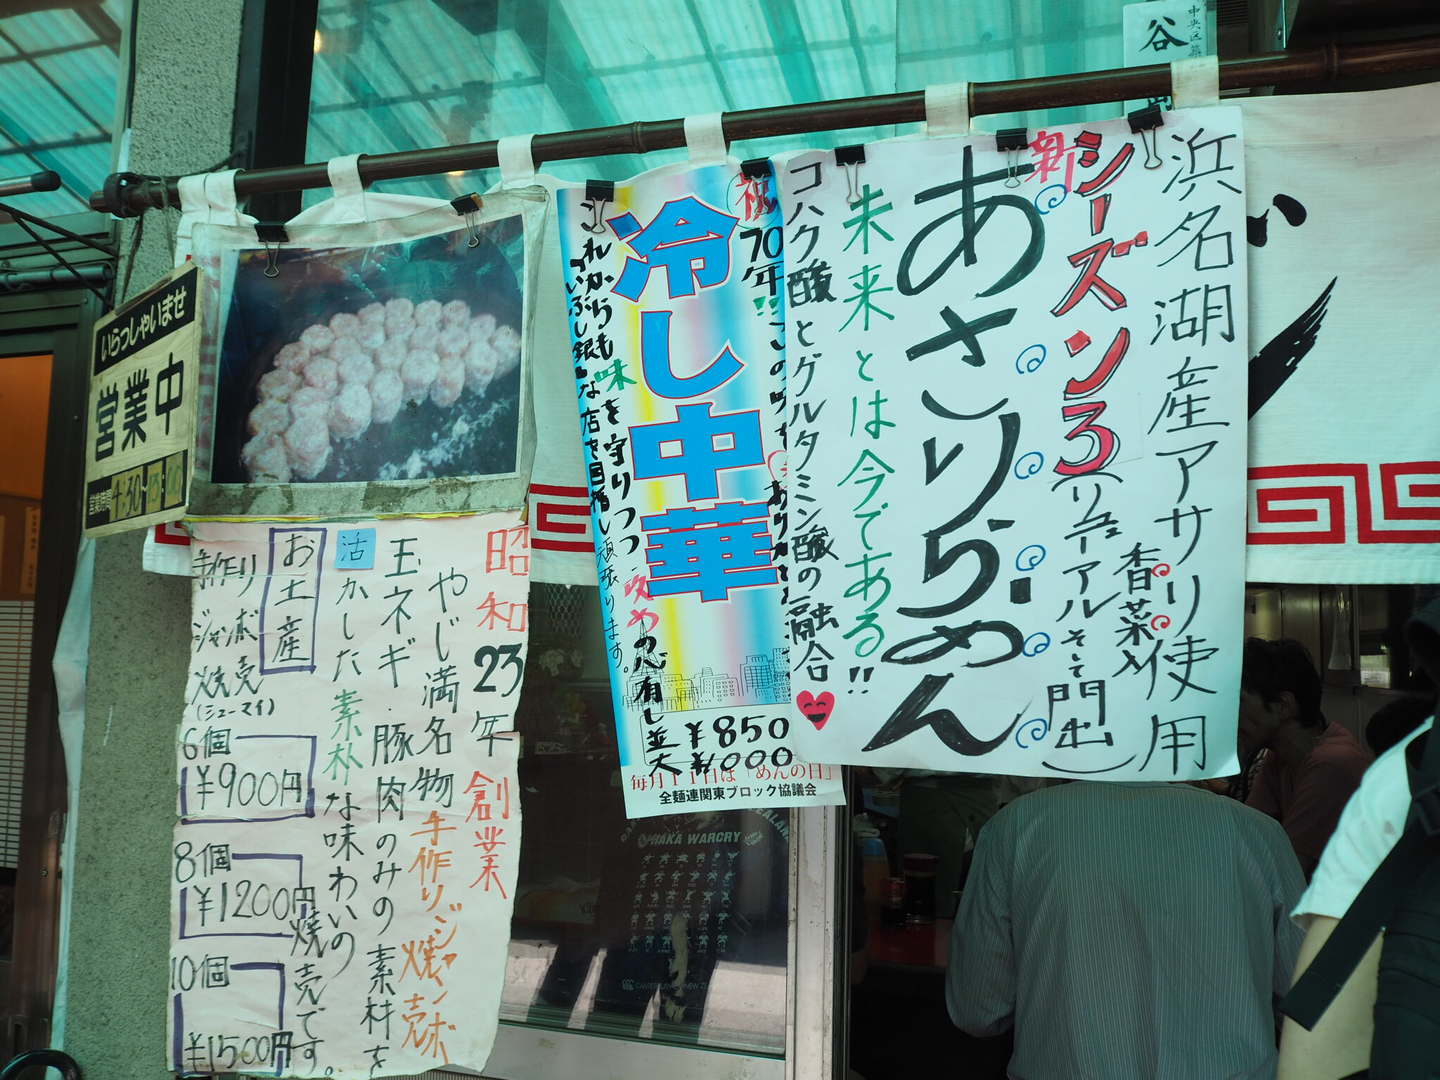 中央区築
谷
浜名湖産アサリ使用
香菜入
新シーズン3
(リニューアルそして門出)
あさりらーめん
未来とは今である!!
コハク酸とグルタミン酸の融合
祝70年!!
冷し中華
これからも味を守りつつ
いぶし銀な店を目指し頑張ります。
並 ¥850
毎月11日は「めんの日」
全麺連関東ブロック協議会
いらっしゃいませ
営業中
営業時間
昭和23年創業
やじ満名物手作りジャンボ焼売
玉ネギ・豚肉のみの素材を
活かした素朴な味わいの
焼売です。
お土産
手作り
ジャンボ
焼売
(シューマイ)
6個
¥900円
8個
¥1200円
10個
¥1500円
HAKA WARCRY